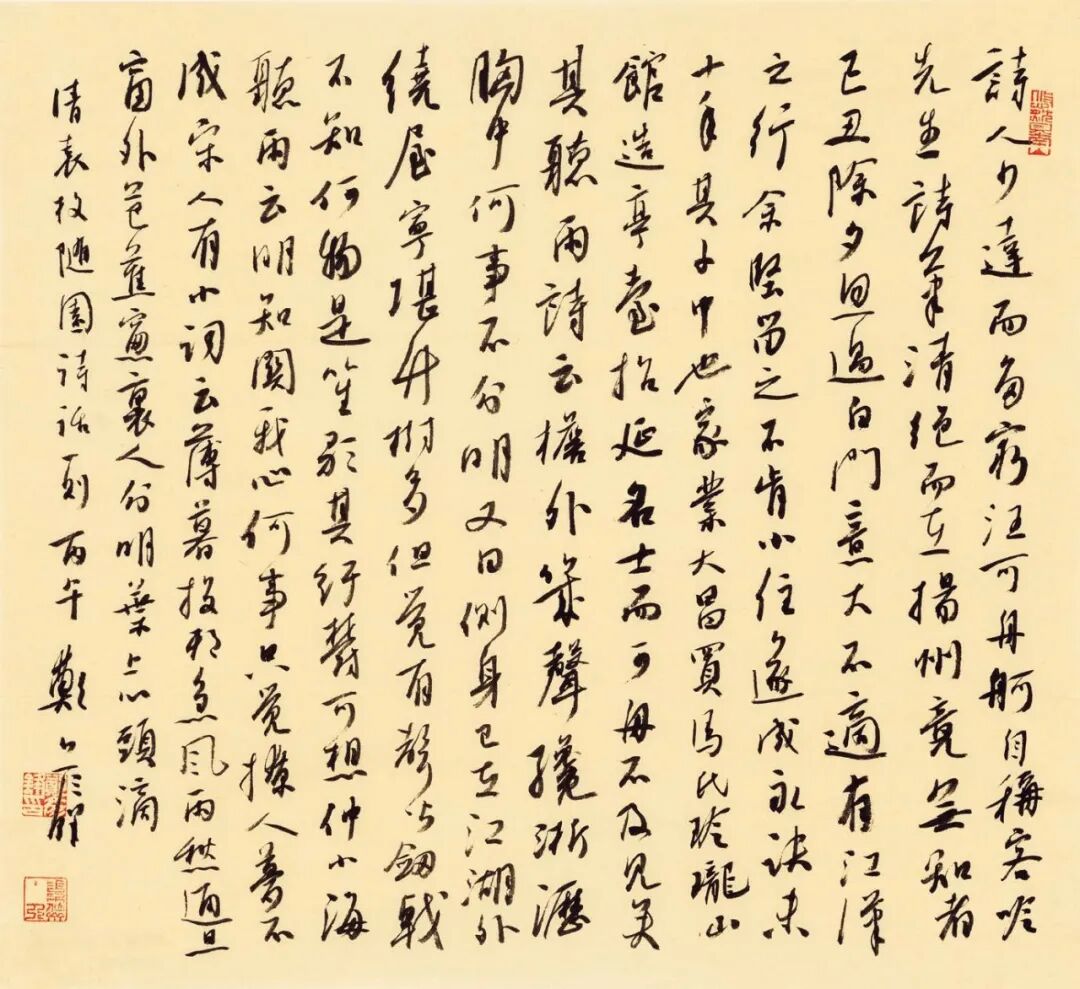 詩人少達而多窮汪可舟舸自稱客吟
先生詩筆清絕而在揚州竟無知者
己丑除夕過白門意大不適有江漢
之行余堅留之不肯小住遂成永訣未
十年其子中也家業大昌買馬氏玲瓏山
館造亭臺招延名士而可舟不及見矣
其聽雨詩云檐外幾聲纔淅瀝
胸中何事不分明又曰側身已在江湖外
繞屋寧堪竹樹多但覺有聲皆劍戟
不知何物是笙歌其紆鬱可想仲小海
聽雨云明知關我心何事只覺撩人夢不
成宋人有小詞云薄暮投村急風雨愁通旦
窗外芭蕉窗裏人分明葉上心頭滴
清袁枚隨園詩話一則 丙午 鄭